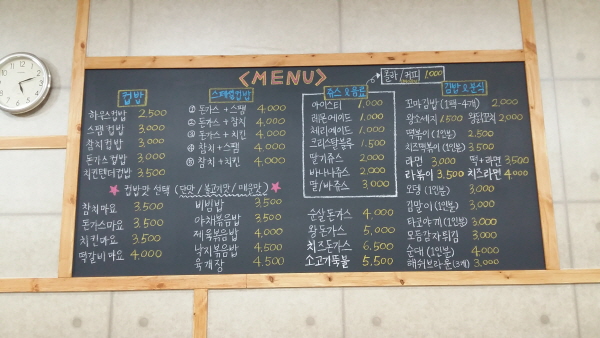 <MENU>
콜라/커피 1,000
컵밥
하우스컵밥 2,500
스팸컵밥 3,000
참치컵밥 3,000
돈가스컵밥 3,000
치킨텐더컵밥 3,500
스페셜컵밥
① 돈가스+스팸 4,000
② 돈가스+참치 4,000
③ 돈가스+치킨 4,000
④ 참치+스팸 4,000
⑤ 참치+치킨 4,000
★ 컵밥맛 선택 (단맛/불고기맛/매운맛) ★
참치마요 3,500
돈가스마요 3,500
치킨마요 3,500
떡갈비마요 4,000
비빔밥 3,500
야채볶음밥 3,500
제육볶음밥 4,000
낙지볶음밥 4,500
육개장 4,500
쥬스&음료
아이스티 1,000
레몬에이드 1,000
체리에이드 1,000
크리스탈블루 1,500
딸기쥬스 2,000
바나나쥬스 2,000
딸/바쥬스 3,000
순살돈가스 4,000
왕돈가스 5,000
치즈돈가스 6,500
소고기뚝불 5,500
김밥&분식
꼬마김밥 (1팩-4개) 2,000
왕소세지 1,500 2,000
떡볶이 (1인분) 2,500
치즈떡볶이 (1인분) 3,500
라면 3,000 떡+라면 3500
라볶이 3,500 치즈라면 4,000
오뎅 (1인분) 3,000
김말이 (1인분) 3,000
타코야끼 (1인분) 3,000
모듬감자튀김 3,000
순대 (1인분) 4,000
해쉬브라운 (3개) 3,000